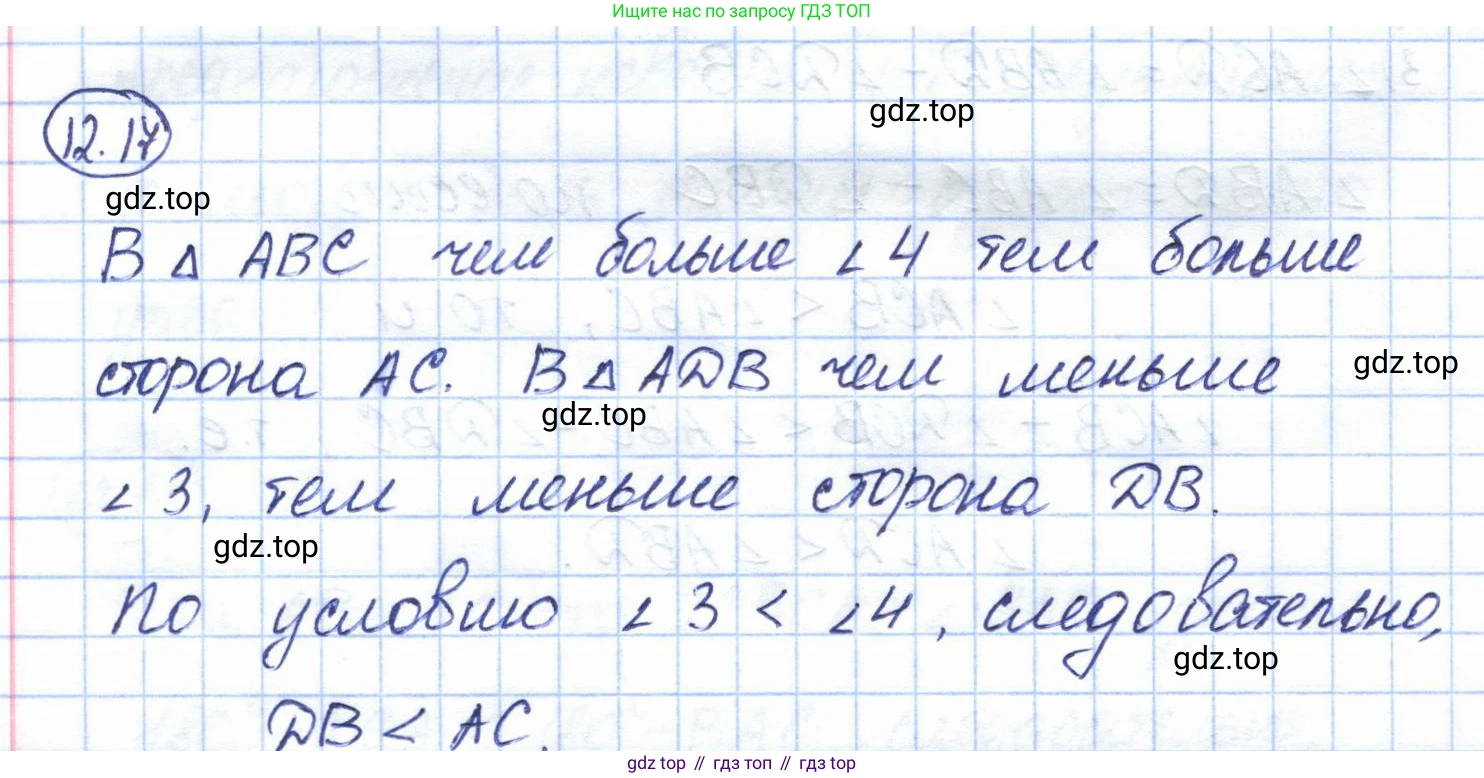 Ищите нас по запросу ГДЗ ТОП
gdz.top
12.17
gdz.top
В △ ABC чем больше ∠4 тем больше
сторона AC. В △ ADB чем меньше
gdz.top
gdz.top
∠3, тем меньше сторона DB.
gdz.top
По условию ∠3 < ∠4, следовательно,
gdz.top
DB < AC.
gdz.top // гдз топ // гдз top